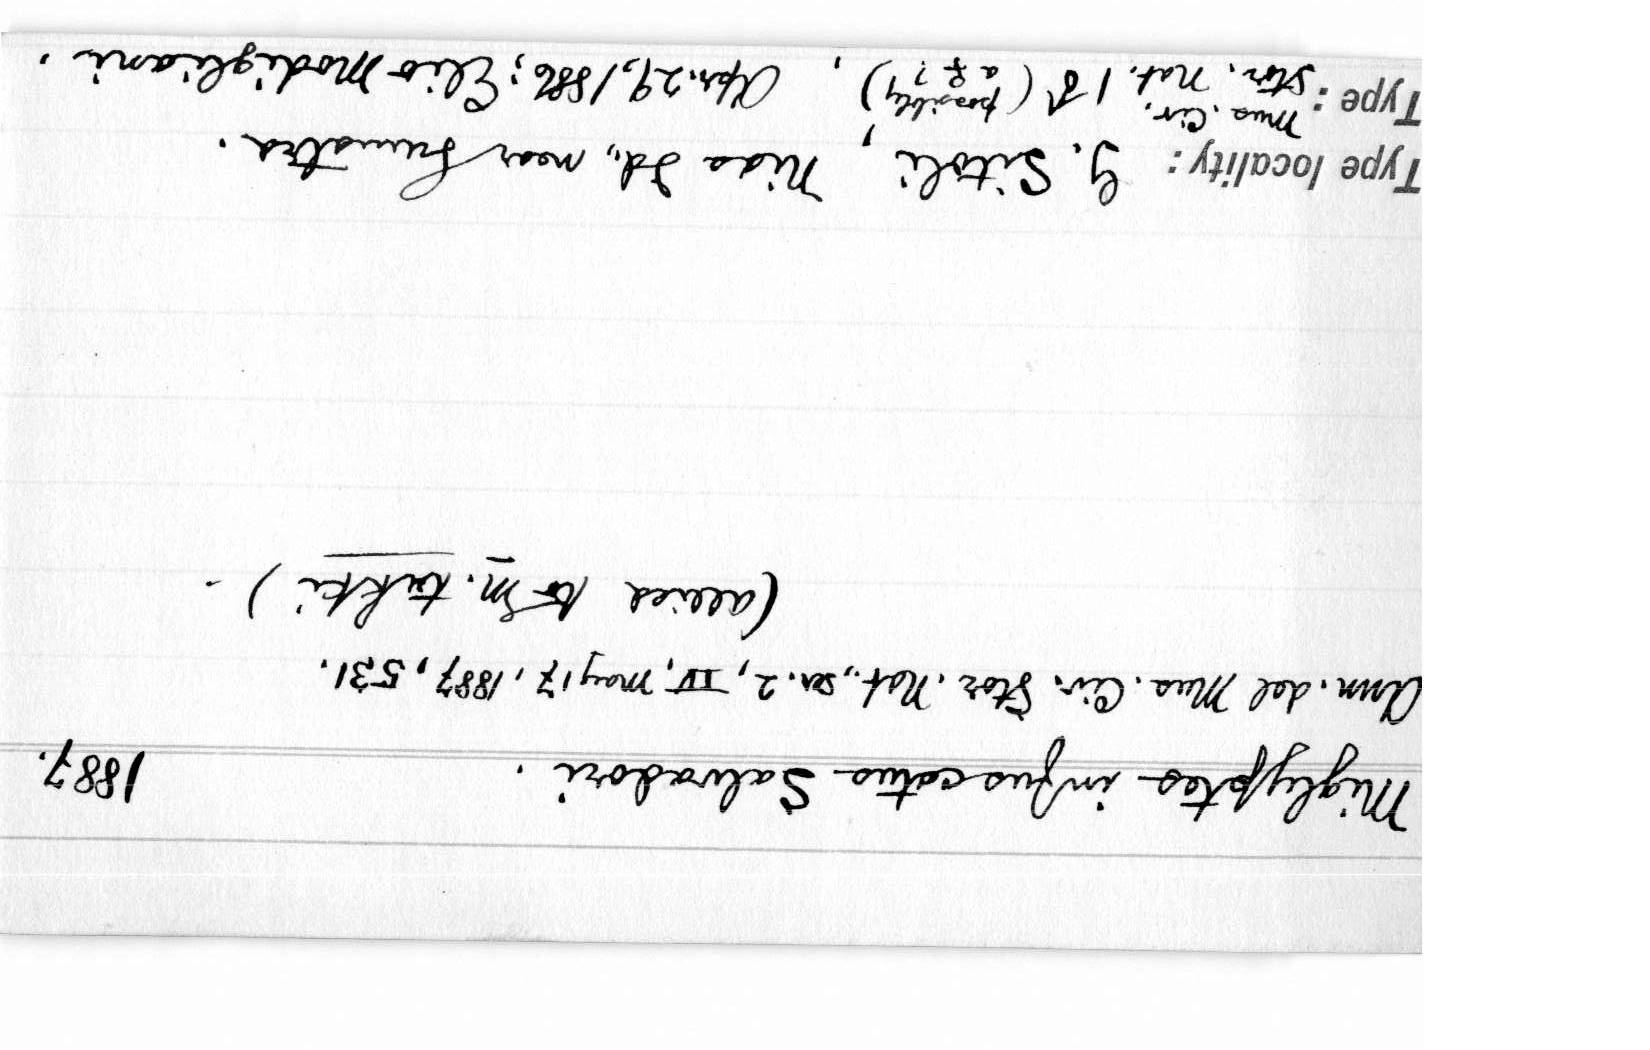 Miglyptes infuscatus Salvadori. 1887.
Ann. del Mus. Civ. Stor. Nat., ser. 2, IV, May 17, 1887, 531.
(allied to M. tukki).
Type locality: G. Sitoli, Nias Id., near Sumatra.
Type: Mus. Civ. Stor. Nat. 1 ♂ (possibly a ♀?), Apr. 29, 1886; Elio Modigliani.